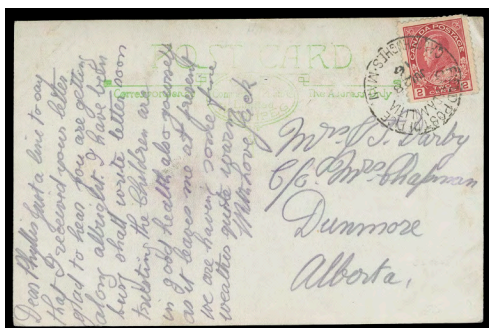 POST CARD
Correspondence
The Address Only
CANADA POSTAGE
2 2
CENTS
Dear Phyllis Just a line to day
that I received your letter
glad to hear you are getting
along allright I have been
busy shall write letter soon
trusting the Children are
in good health also yourself
as it leaves me at present
we are having some fine
weather quite warm
With love Jack
Mrs J. Darby
C/o. Mrs Chapman
Dunmore
Alberta.